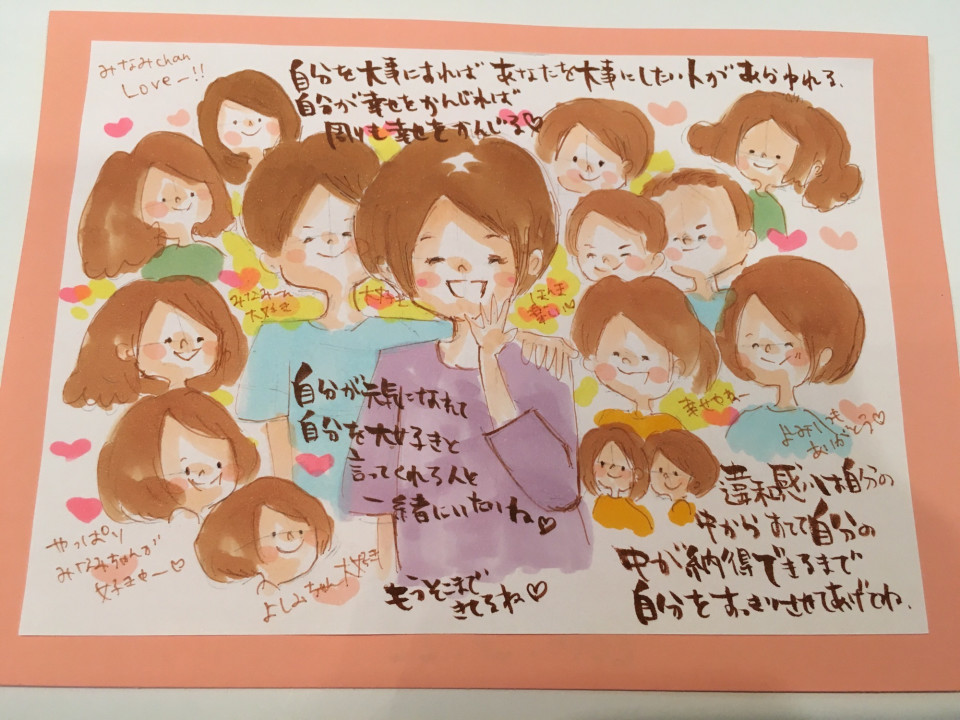 みなみchan
Love〜!!
自分を大事にすれば あなたを大事にしたい人があらわれる.
自分が幸せをかんじれば
周りも幸せをかんじる♡
みなみーん
大好き
大好き
ほんま
自分が元気になれて
自分を大好きと
言ってくれる人と
一緒にいたいね♡
幸せやねー
よしみちゃん大好き
やっぱり
みなみちゃんが
好きやー♡
もうそこまで
きてるね♡
ありがとう♡
違和感は自分の
中からすてて自分の
中が納得できるまで
自分をすっきりさせてあげてね.